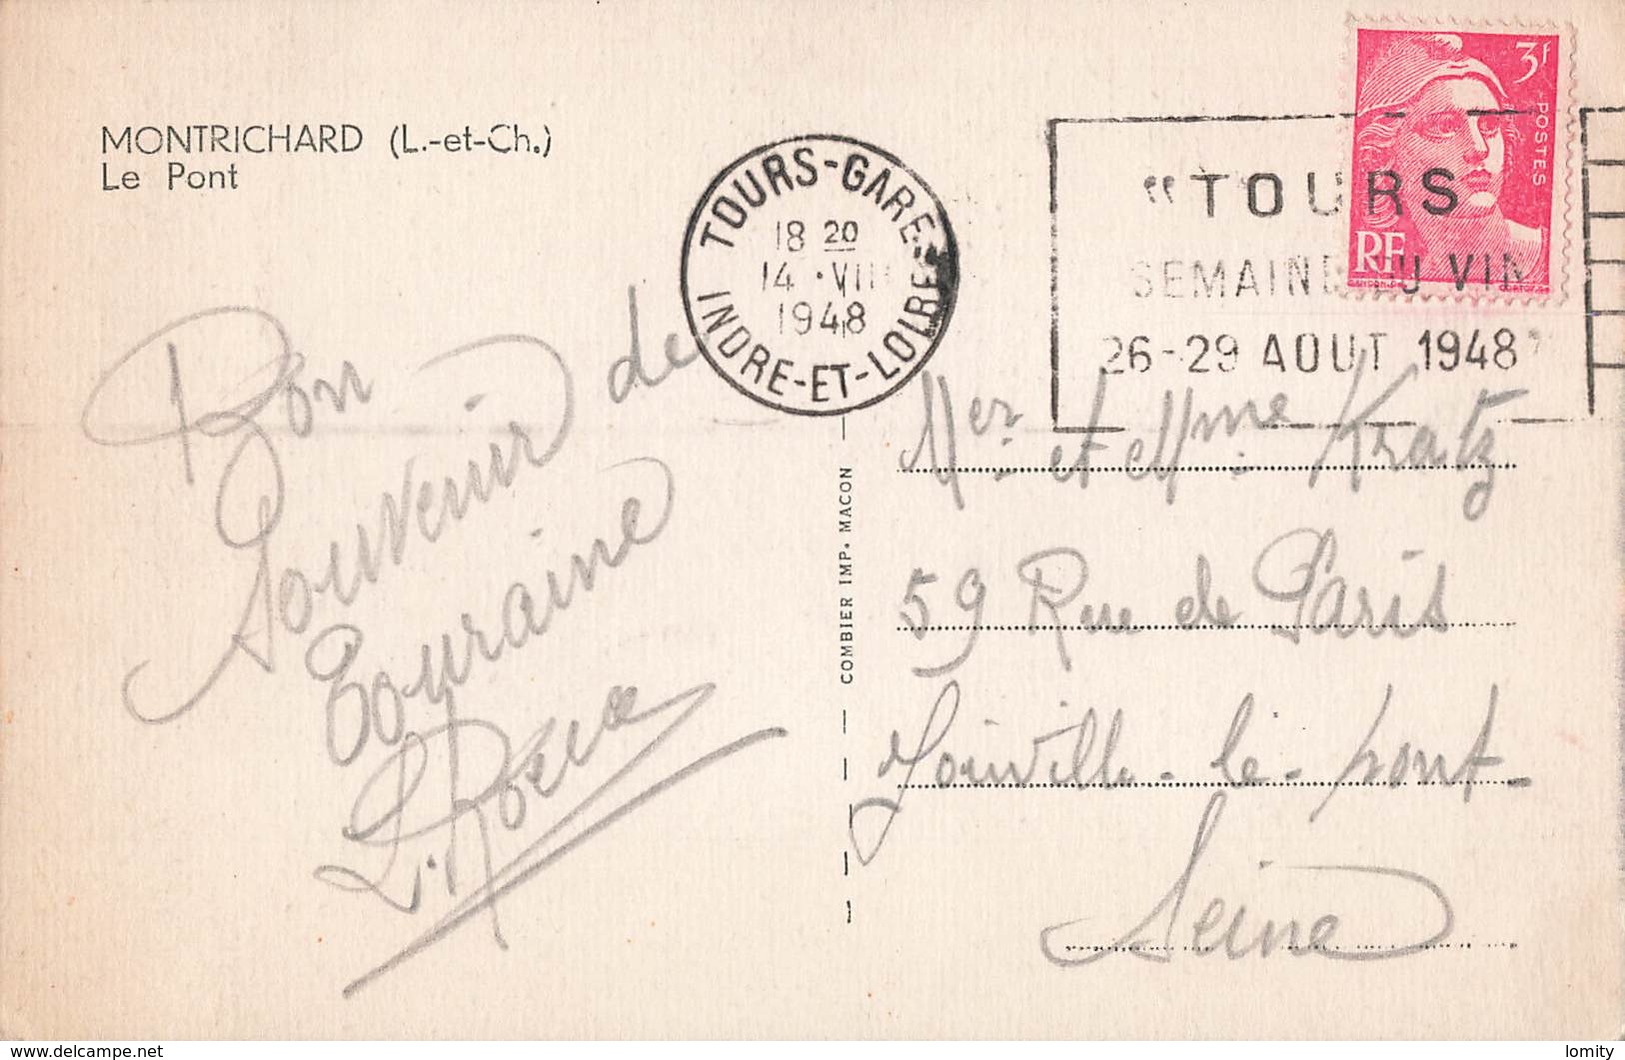 MONTRICHARD (L.-et-Ch.)
Le Pont
TOURS-GARE
18 20
14 · VIII
1948
INDRE-ET-LOIRE
3f
POSTES
RF
"TOURS
SEMAINE DU VIN
26-29 AOUT 1948"
Bon
Souvenir de
Touraine
COMBIER IMP. MACON
Mer et Mme Kratz
59 Rue de Paris
Joinville-le-pont-
Seine
delcampe.net
lomity